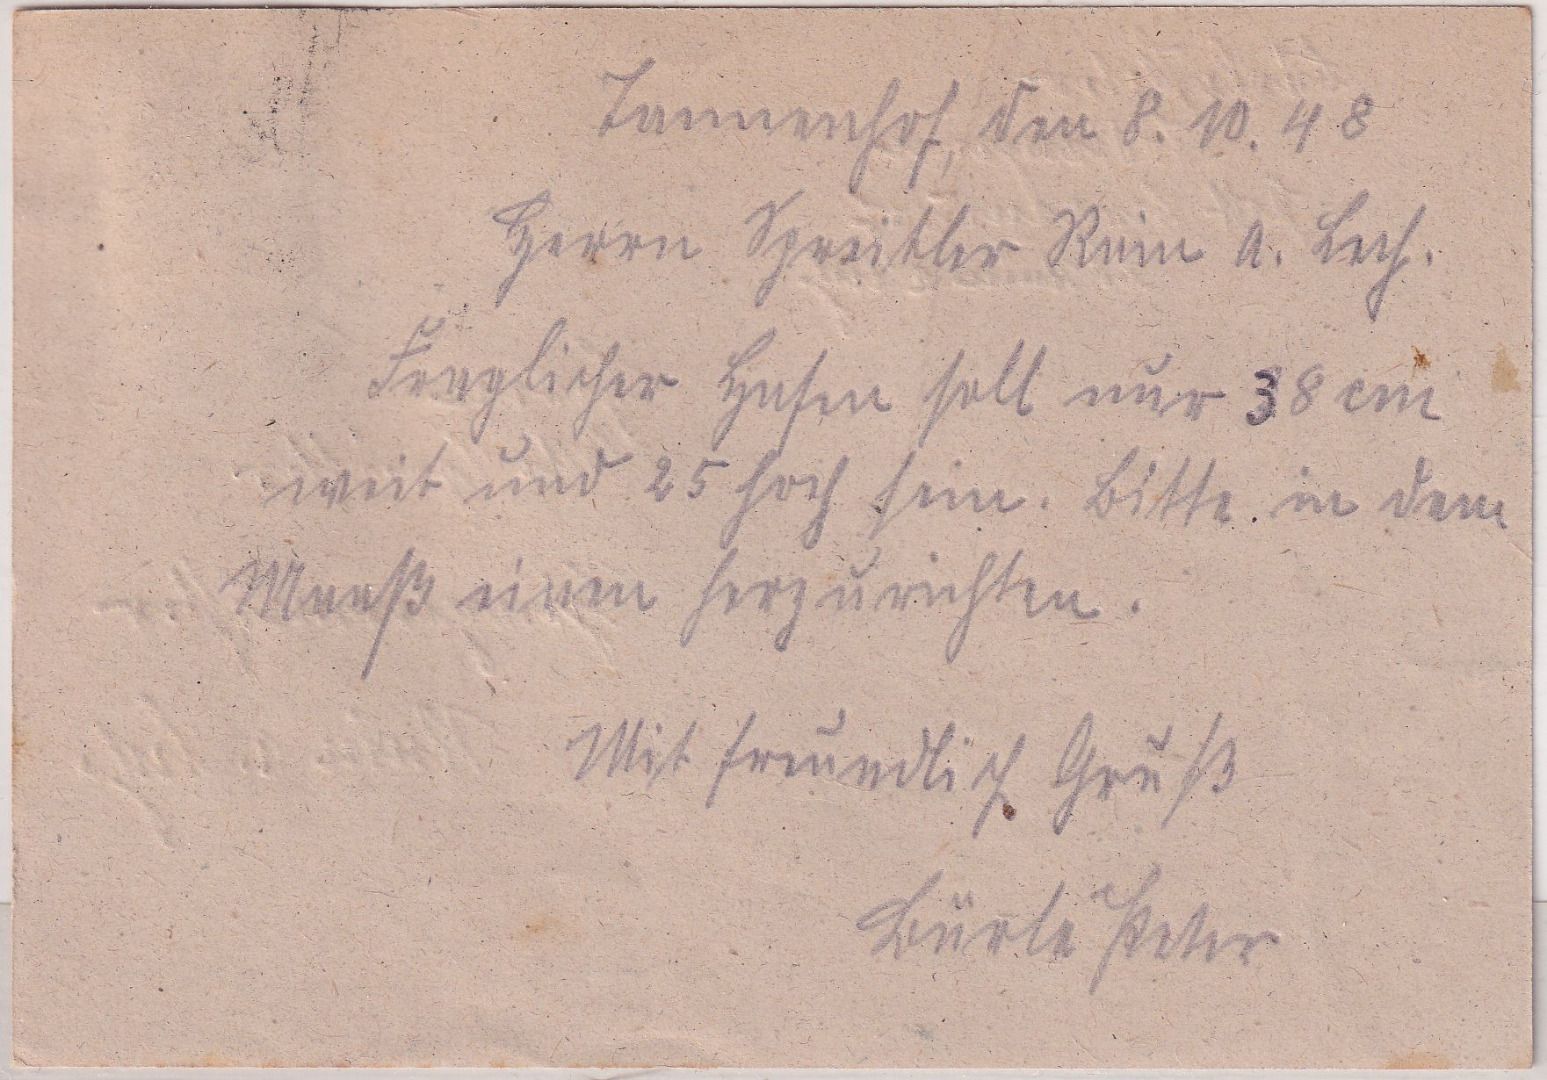 Tannenhof, den 8. 10. 48
Herrn Spreitler Rain a. Lech.
Fraglicher Hafen soll nur 38 cm
weit und 25 hoch sein. Bitte in dem
Maaß einen herzurichten.
Mit freundlich Gruß
Bürle Peter